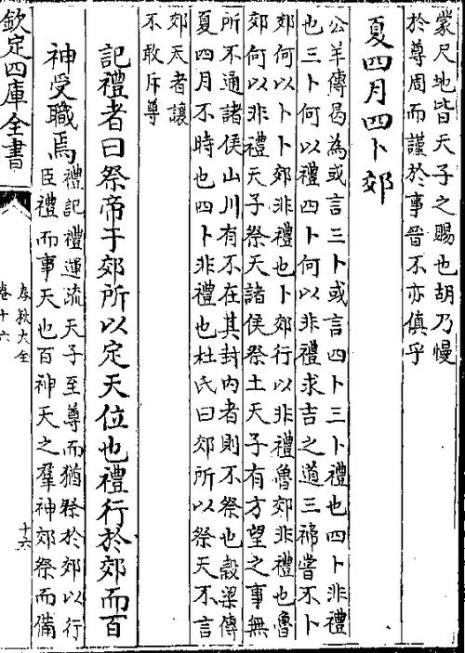 蒙尺地皆天子之賜也胡乃慢
於尊周而謹於事晉不亦傎乎
夏四月四卜郊
公羊傳曷為或言三卜或言四卜三卜禮也四卜非禮
也三卜何以禮四卜何以非禮求吉之道三禘嘗不卜
郊何以卜卜郊非禮也卜郊何以非禮魯郊非禮也魯
郊何以非禮天子祭天諸侯祭土天子有方望之事無
所不通諸侯山川有不在其封内者則不祭也穀梁傳
夏四月不時也四卜非禮也杜氏曰郊所以祭天不言
郊天者讓
不敢斥尊
記禮者曰祭帝于郊所以定天位也禮行於郊而百
神受職焉
禮記禮運疏天子至尊而猶祭於郊以行
臣禮而事天也百神天之羣神郊祭而備
欽定四庫全書
春秋大全
卷十六
十六